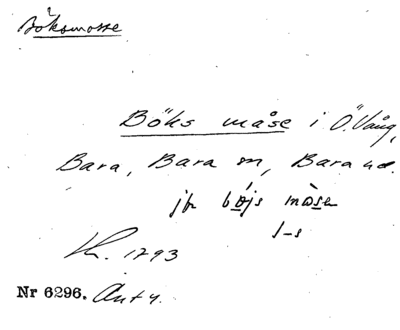 Böksmosse
Böks måse i Ö. Vång,
Bara, Bara sn, Bara hd.
jfr böjs måse
l-s
Kh. 1793
Nr 6296. Ant 4.